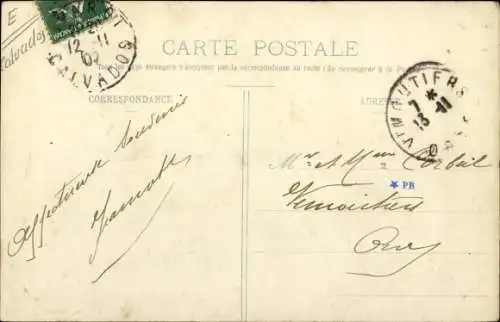 E
Calvados
12 - 11
CALVADOS
CARTE POSTALE
Tous les pays étrangers n'acceptent pas la correspondance au recto (Se renseigner à la Poste)
CORRESPONDANCE
ADRESSE
VIMOUTIERS
7 *
13 - 11
09
Affectueux Souvenirs
Mr et Mme Corbeil
* PB
Vimoutiers
Orne